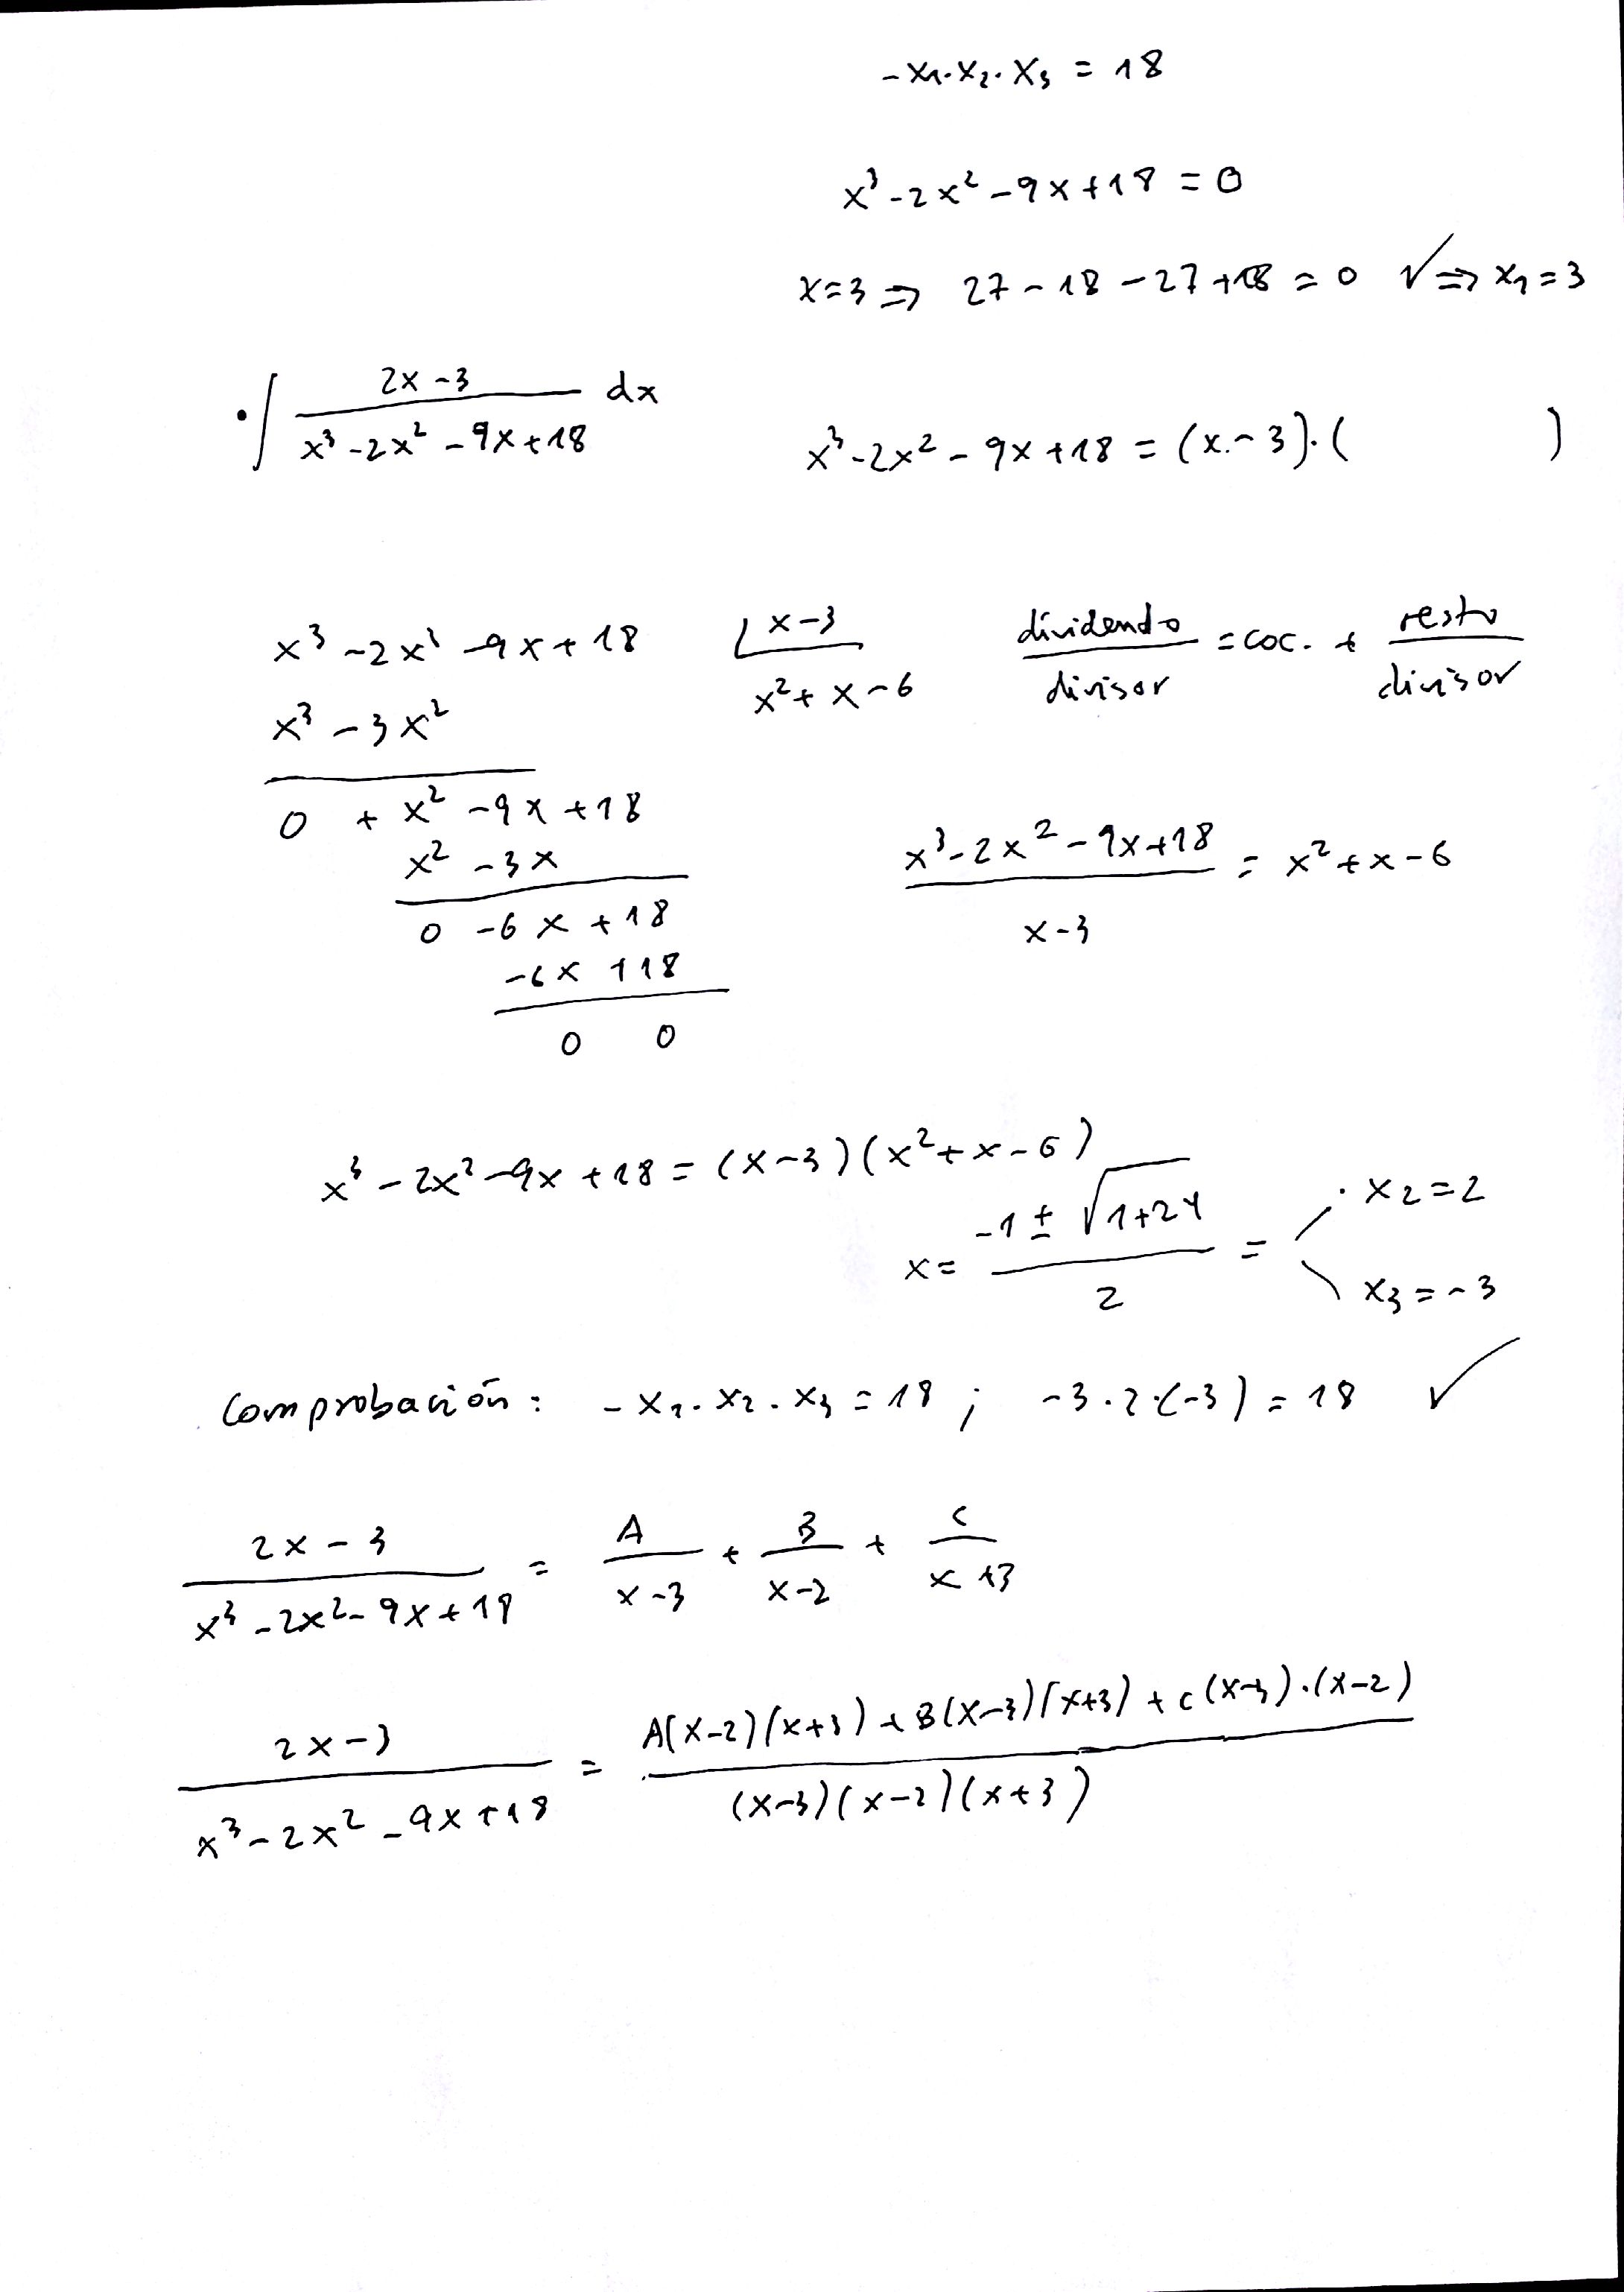 -x₁·x₂·x₃ = 18
x³-2x²-9x+18 = 0
x=3 ⇒ 27-18-27+18 = 0 ✓ ⇒ x₁=3
· ∫ (2x-3)/(x³-2x²-9x+18) dx
x³-2x²-9x+18 = (x-3)·( )
x³-2x²-9x+18 | x-3
x³-3x² x²+x-6
dividendo/divisor = coc. + resto/divisor
0 + x²-9x+18
x²-3x
0 -6x+18
-6x+18
0 0
(x³-2x²-9x+18)/(x-3) = x²+x-6
x³-2x²-9x+18 = (x-3)(x²+x-6)
x = (-1±√(1+24))/2 = x₂=2
x₃=-3
Comprobación: -x₁·x₂·x₃ = 18 ; -3·2·(-3) = 18 ✓
(2x-3)/(x³-2x²-9x+18) = A/(x-3) + B/(x-2) + C/(x+3)
(2x-3)/(x³-2x²-9x+18) = (A(x-2)(x+3)+B(x-3)(x+3)+C(x-3)·(x-2))/((x-3)(x-2)(x+3))